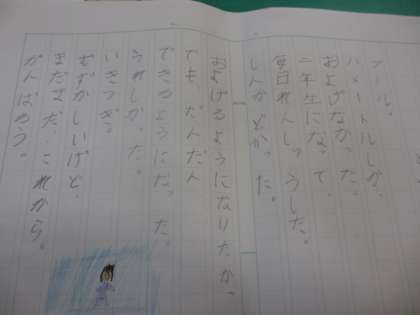 プール。
ハメートルしか、
およげなかった。
二年生になって、
毎日れんしゅうした。
しんかどかった。
およげるようになりたかっ
でも、だんだん
できるようになった。
うれしかった。
いきつぎ。
むずかしいけど、
まだまだ、これから。
がんばろう。